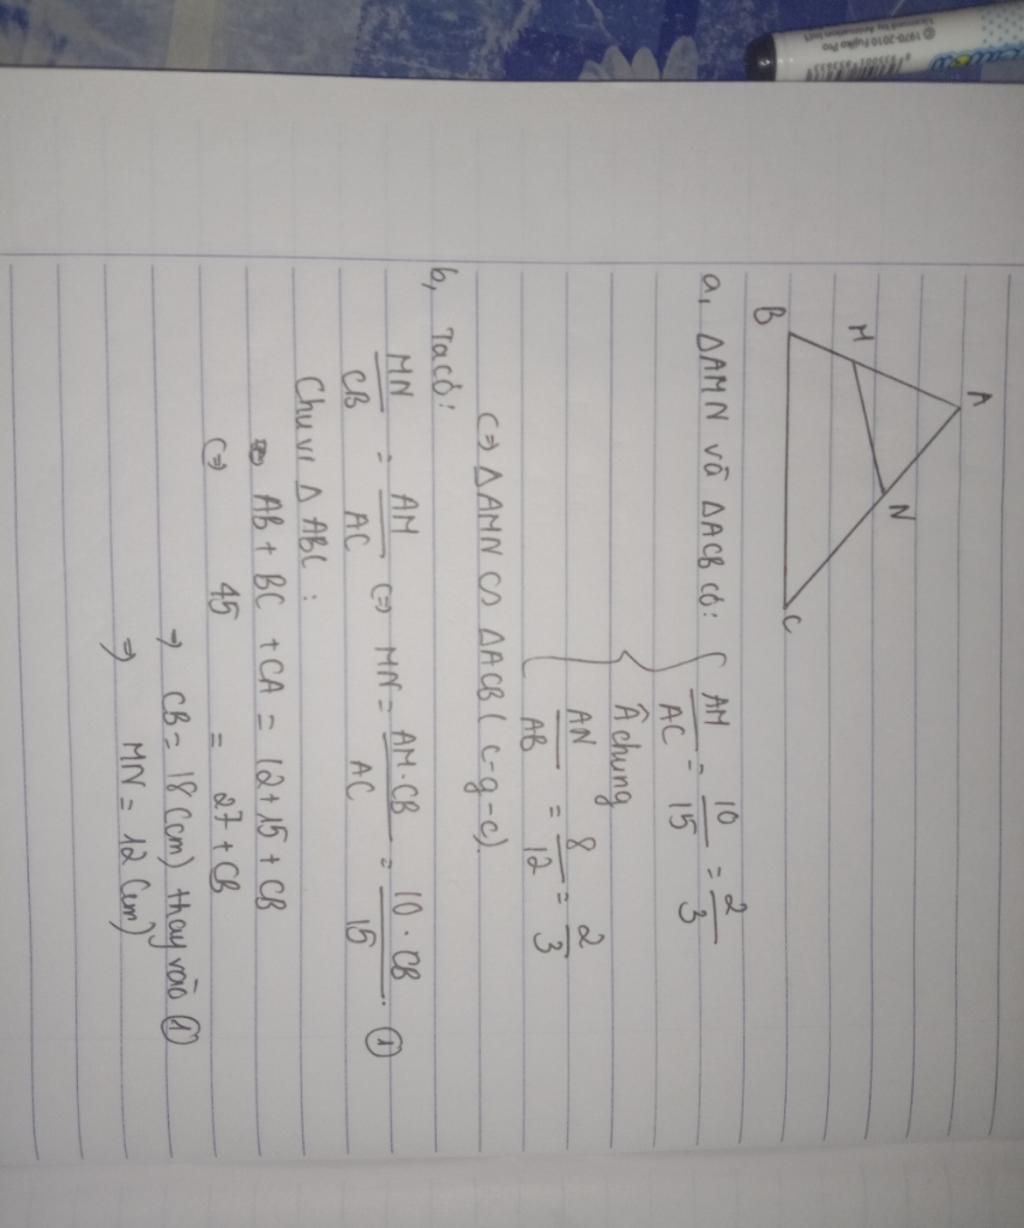 A
M
N
B
C
a, ΔAMN và ΔACB có: { AM/AC = 10/15 = 2/3
Â chung
AN/AB = 8/12 = 2/3
(=> ΔAMN ∽ ΔACB (c-g-c).
b, Ta có:
MN/CB = AM/AC (=> MN = AM.CB/AC = 10.CB/15. ①
Chu vi Δ ABC :
AB + BC + CA = 12+15 + CB
(=> 45 = 27 + CB
=> CB = 18 (cm) thay vào ①
=> MN = 12 (cm)
© 1970-2010 Fujiko Pro